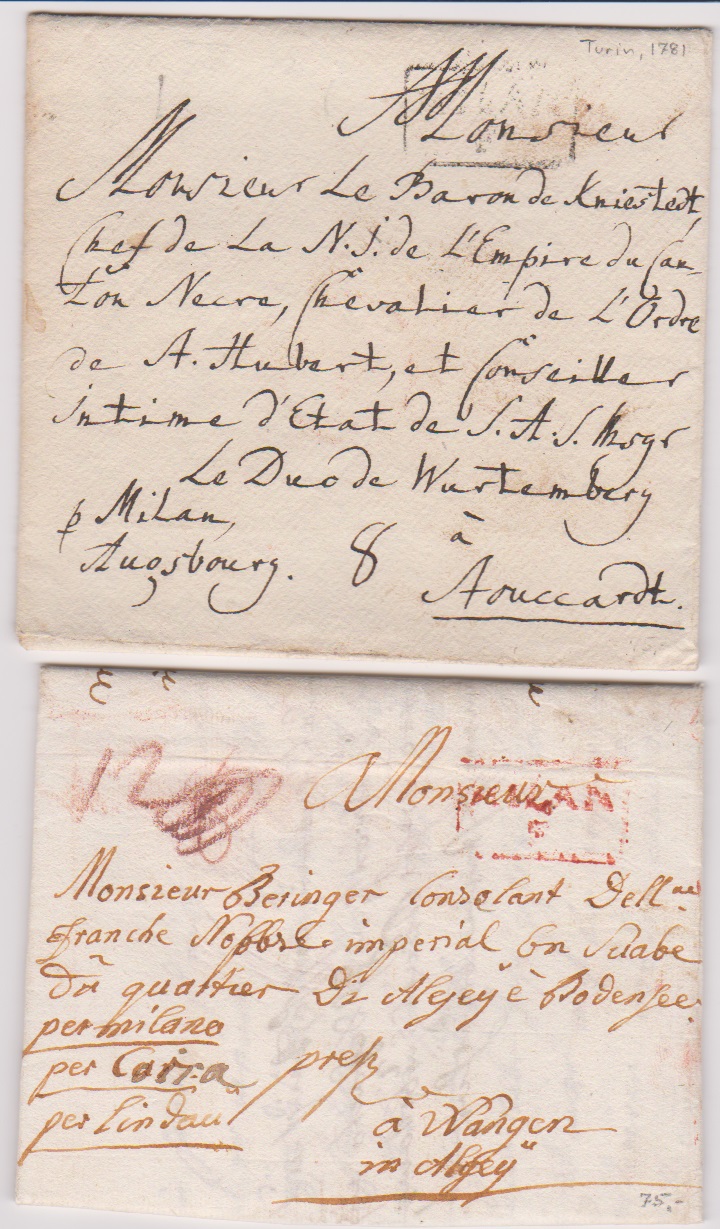 Turin, 1781
Monsieur
Monsieur Le Baron de Kniestedt,
Chef de La N. I. de L'Empire du Can-
ton Necre, Chevalier de L'Ordre
de A. Hubert, et Conseiller
intime d'Etat de S. A. S. Msgr
Le Duc de Wurtemberg
p Milan,
Augsbourg. 8 à
12
Monsieur
MILAN
Monsieur Beringer Consolant Dell
franche Nobbre imperial En Suabe
Du quartier Di Algeÿ è Bodensee
per milano
per Coira presz
per Lindau à Wangen
in Algeÿ
75.-